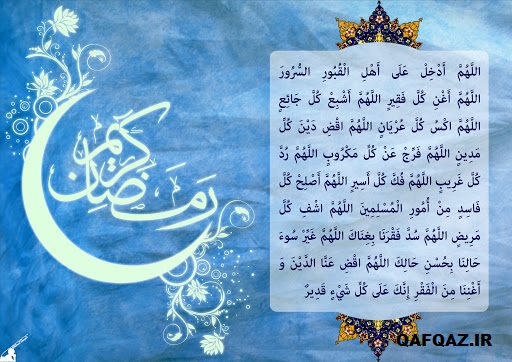 رمضان كريم
اللَّهُمَّ أَدْخِلْ عَلَى أَهْلِ الْقُبُورِ السُّرُورَ
اللَّهُمَّ أَغْنِ كُلَّ فَقِيرٍ اللَّهُمَّ أَشْبِعْ كُلَّ جَائِعٍ
اللَّهُمَّ اكْسُ كُلَّ عُرْيَانٍ اللَّهُمَّ اقْضِ دَيْنَ كُلِّ
مَدِينٍ اللَّهُمَّ فَرِّجْ عَنْ كُلِّ مَكْرُوبٍ اللَّهُمَّ رُدَّ
كُلَّ غَرِيبٍ اللَّهُمَّ فُكَّ كُلَّ أَسِيرٍ اللَّهُمَّ أَصْلِحْ كُلَّ
فَاسِدٍ مِنْ أُمُورِ الْمُسْلِمِينَ اللَّهُمَّ اشْفِ كُلَّ
مَرِيضٍ اللَّهُمَّ سُدَّ فَقْرَنَا بِغِنَاكَ اللَّهُمَّ غَيِّرْ سُوءَ
حَالِنَا بِحُسْنِ حَالِكَ اللَّهُمَّ اقْضِ عَنَّا الدَّيْنَ وَ
أَغْنِنَا مِنَ الْفَقْرِ إِنَّكَ عَلَى كُلِّ شَيْءٍ قَدِيرٌ
QAFQAZ.IR